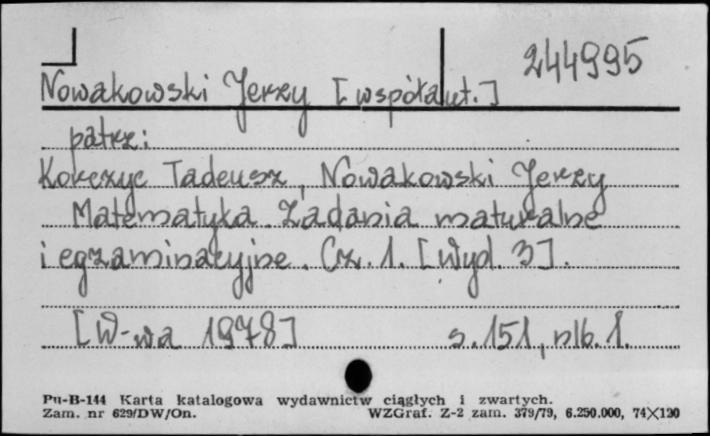 244995
Nowakowski Jerzy [współaut.]
patrz:
Korczyc Tadeusz, Nowakowski Jerzy
Matematyka. Zadania maturalne
i egzaminacyjne. Cz. 1. [Wyd. 3].
[W-wa 1978] s. 151, nlb. 1.
Pu-B-144 Karta katalogowa wydawnictw ciągłych i zwartych.
Zam. nr 629/DW/On. WZGraf. Z-2 zam. 379/79, 6.250.000, 74×120